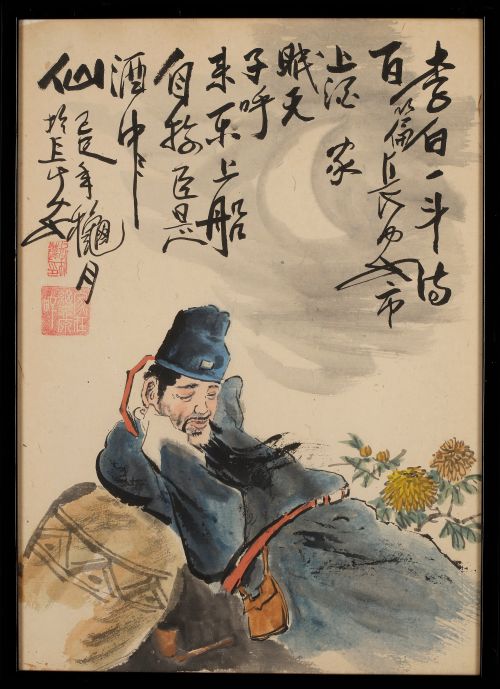 李白一斗诗
百篇長安市
上酒家
眠天
子呼
来不上船
自称臣是
酒中
仙
己巳年穐月
於上